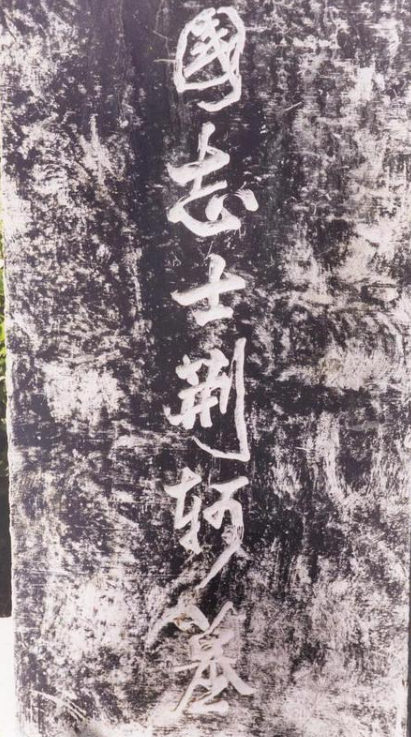 國志士荆轲墓